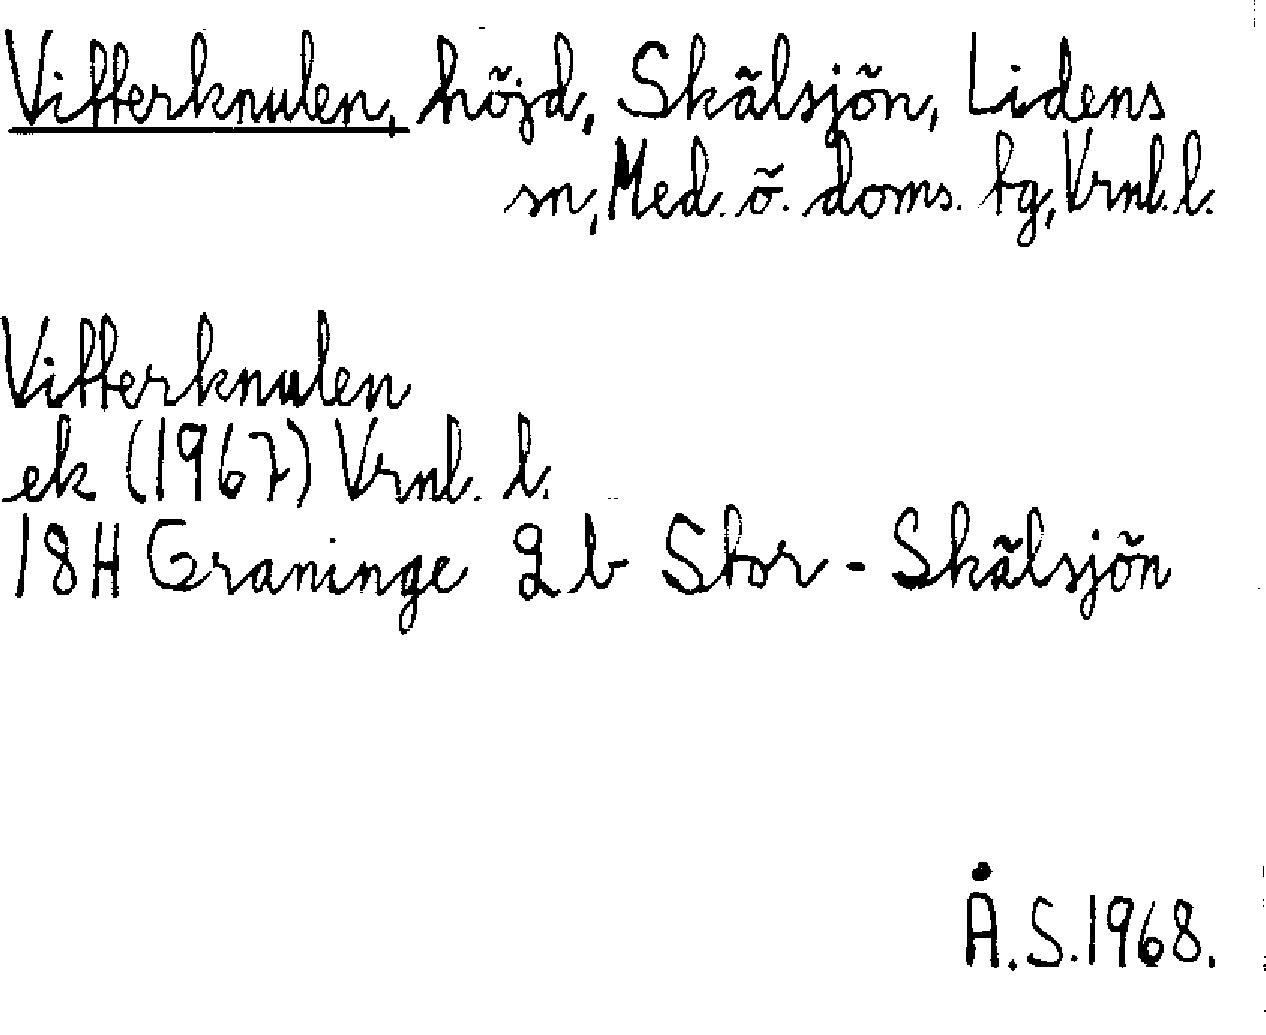 Vitterknulen, höjd, Skälsjön, Lidens
sn, Med. ö. doms. tg, Vrnl. l.
Vitterknulen
ek (1967) Vrnl. l.
18H Graninge 2 b Stor - Skälsjön
Å.S. 1968.